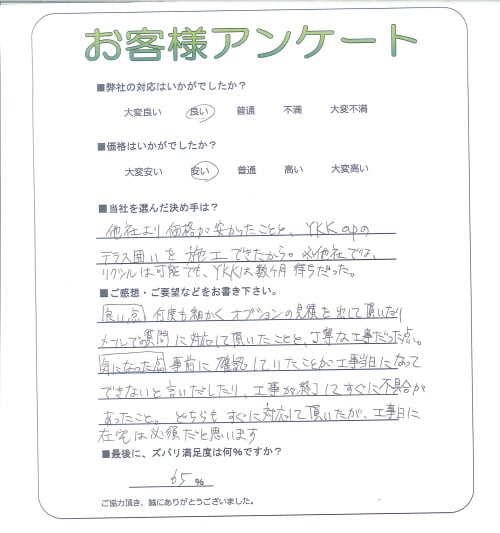 お客様アンケート
■弊社の対応はいかがでしたか？
大変良い 良い 普通 不満 大変不満
■価格はいかがでしたか？
大変安い 安い 普通 高い 大変高い
■当社を選んだ決め手は？
他社より価格が安かったことと、YKK apの
テラス囲いを施工できたから。※他社では、
リクシルは可能でも、YKKは数ヶ月待ちだった。
■ご感想・ご要望などをお書き下さい。
良い点 何度も細かくオプションの見積を出して頂いたり
メールでの質問に対応して頂いたことと、丁寧な工事だった点。
気になった点 事前に確認していたことが工事当日になって
できないと言いだしたり、工事が終了してすぐに不具合が
あったこと。どちらもすぐに対応して頂いたが、工事日に
在宅は必須だと思います
■最後に、ズバリ満足度は何％ですか？
65 %
ご協力頂き、誠にありがとうございました。